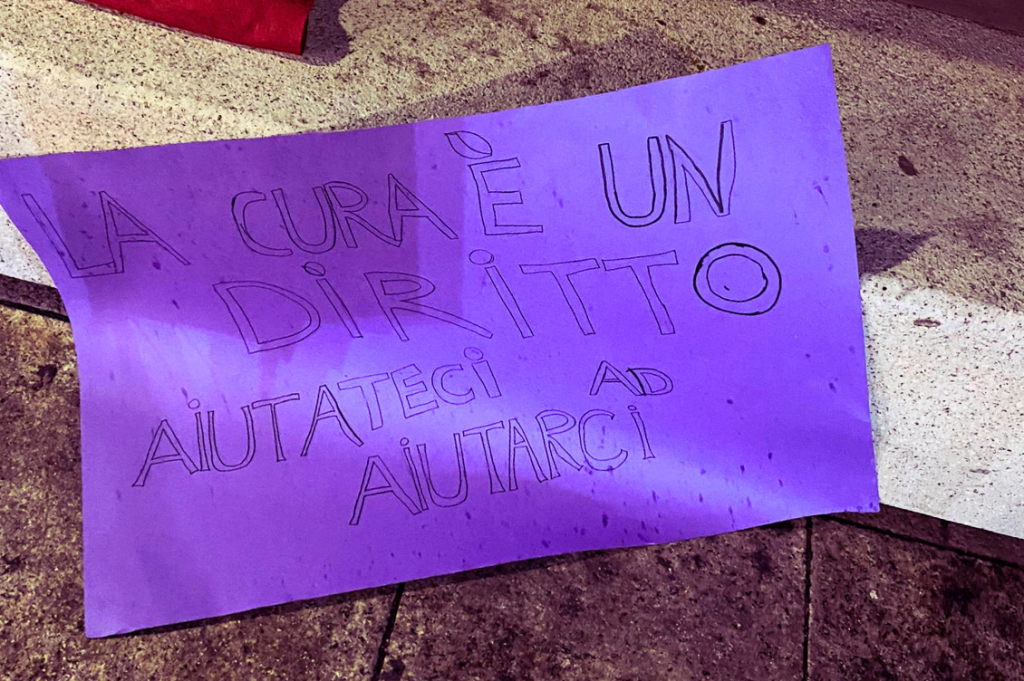 LA CURA È UN
DIRITTO
AIUTATECI AD
AIUTARCI